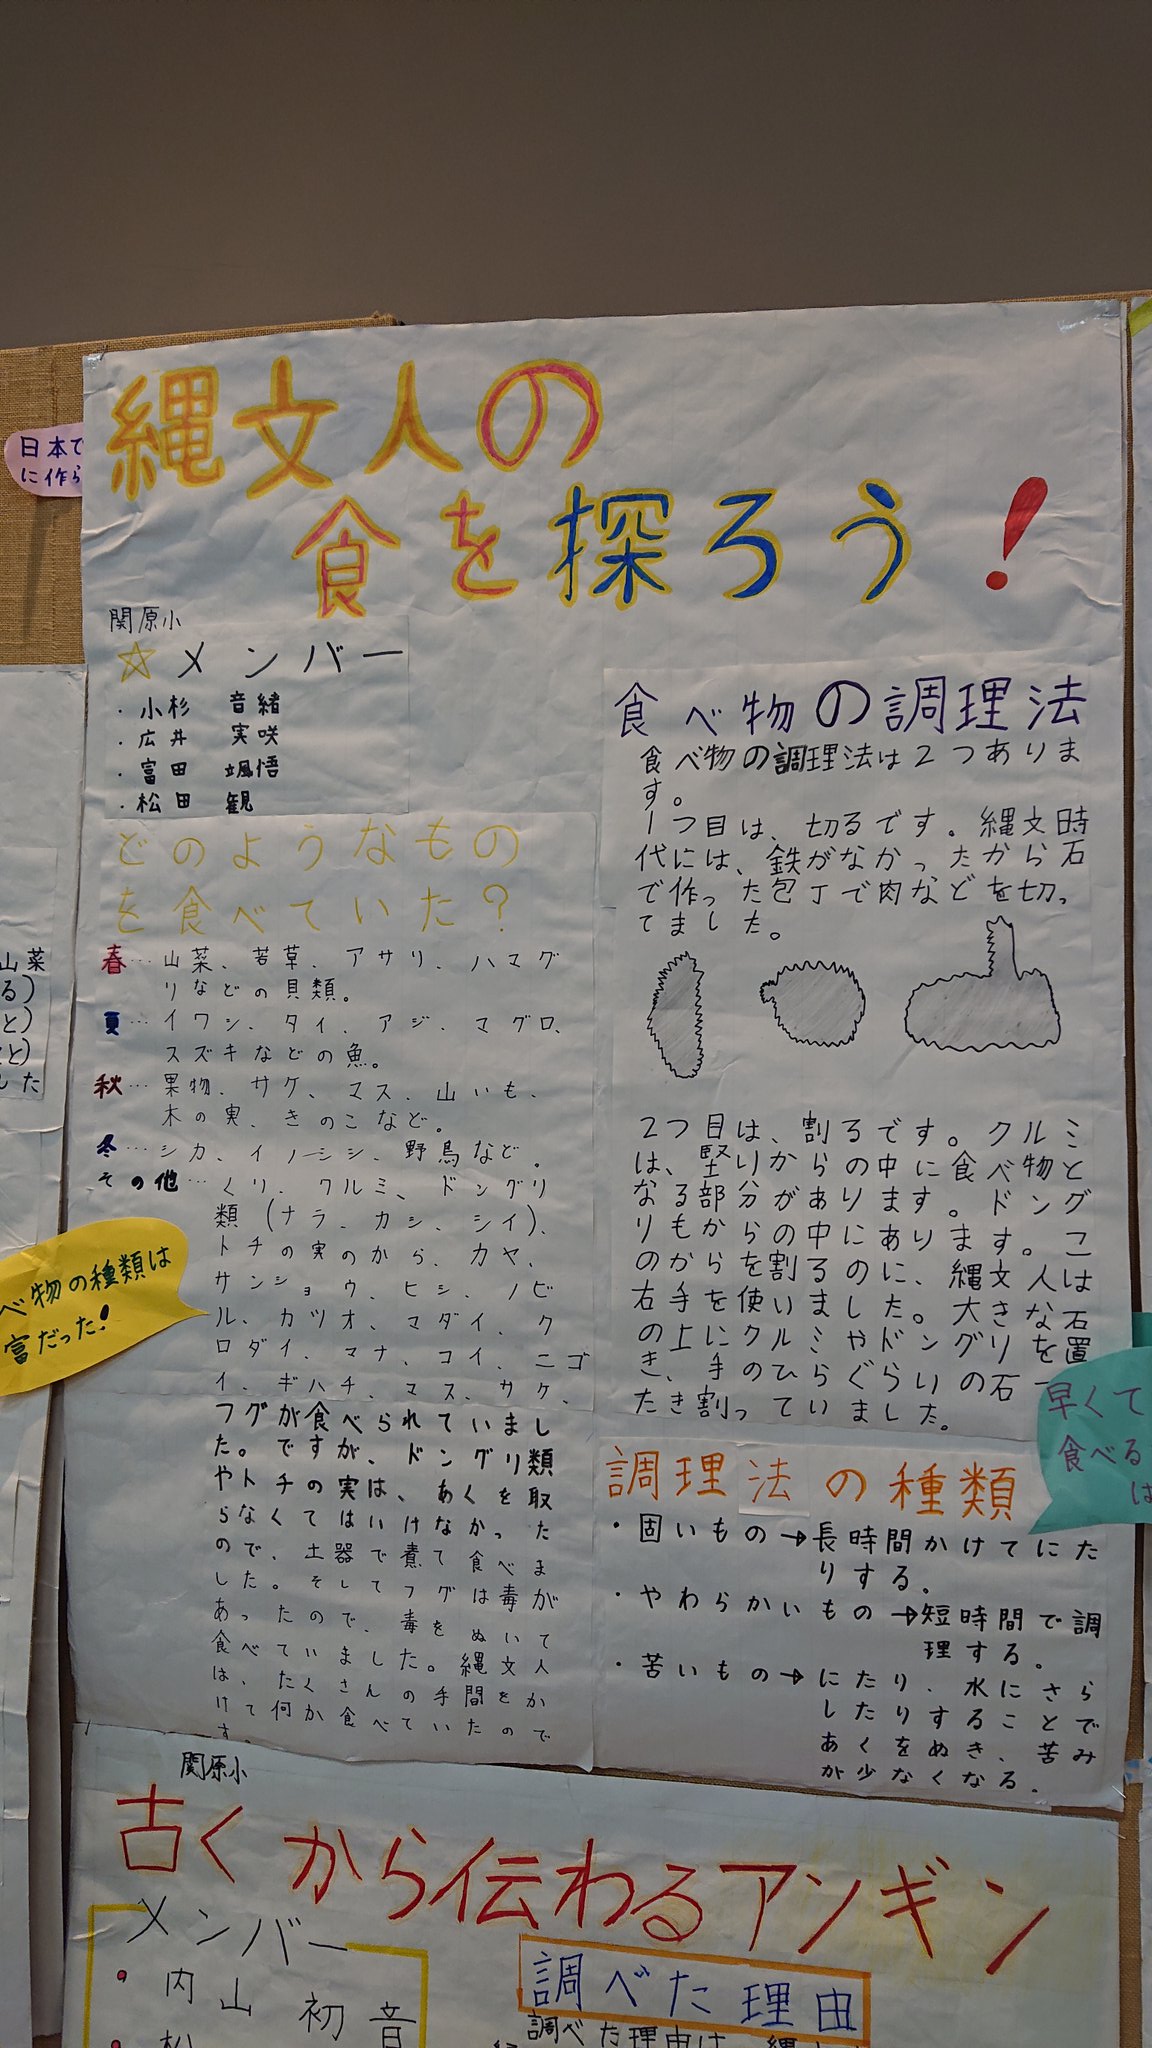 縄文人の
食を探ろう!
関原小
☆メンバー
・小杉 音緒
・広井 実咲
・富田 颯悟
・松田 観
どのようなもの
を食べていた?
春…山菜、若草、アサリ、ハマグ
リなどの貝類。
夏…イワシ、タイ、アジ、マグロ、
スズキなどの魚。
秋…果物、サケ、マス、山いも、
木の実、きのこなど。
冬…シカ、イノシシ、野鳥など。
その他…くり、クルミ、ドングリ
類(ナラ、カシ、シイ)、
トチの実のから、カヤ、
サンショウ、ヒシ、ノビ
ル、カツオ、マダイ、ク
ロダイ、マナ、コイ、ニゴ
イ、ギハチ、マス、サケ、
フグが食べられていまし
た。ですが、ドングリ類
やトチの実は、あくを取
らなくてはいけなかった
ので、土器で煮て食べま
した。そしてフグは毒が
あったので、毒をぬいて
食べていました。縄文人
は、たくさんの手間をか
けて何か食べていたので
す。
食べ物の調理法
食べ物の調理法は2つありま
す。
1つ目は、切るです。縄文時
代には、鉄がなかったから石
で作った包丁で肉などを切っ
てました。
2つ目は、割るです。クルミ
は、堅いからの中に食べ物と
なる部分があります。ドング
りもからの中にあります。こ
のからを割るのに、縄文人は
右手を使いました。大きな石
の上にクルミやドングリを置
き、手のひらぐらいの石一
たき割っていました。
調理法の種類
・固いもの→長時間かけてにた
りする。
・やわらかいもの→短時間で調
理する。
・苦いもの→にたり、水にさら
したりすることで
あくをぬき、苦み
が少なくなる。
日本で
に作ら
山菜
る)
と)
と)
した
べ物の種類は
富だった!
早くて
食べる
は
関原小
古くから伝わるアンギン
メンバー
・内山 初音
・松
調べた理由
調べた理由は、縄